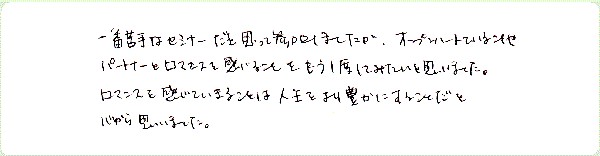 一番苦手なセミナーだと思って参加しましたが、オープンハートでいることや
パートナーとロマンスを感じることを もう1度してみたいと思いました。
ロマンスを感じていきることは人生をより豊かにすることだと
心から思いました。